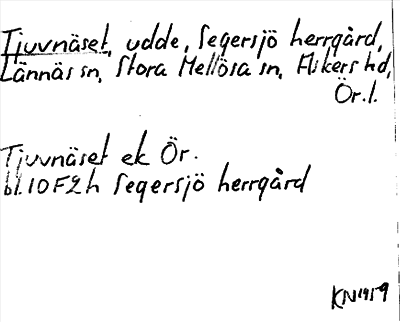 Tjuvnäset, udde, Segersjö herrgård,
Lännäs sn, Stora Mellösa sn, Askers hd,
Ör. l.
Tjuvnäset ek Ör.
bl. 10F2h Segersjö herrgård
KN 1959